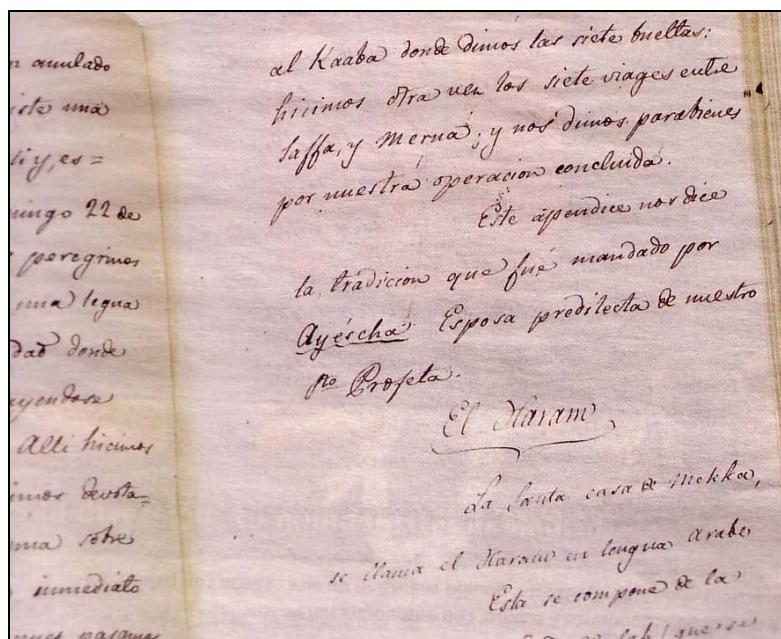 amulado
una
y, es=
22 de
peregrinos
una legua
donde
Alli hicimos
devota=
sobre
inmediato
pasamos
al Kaaba donde dimos las siete bueltas:
hicimos otra vez los siete viages entre
Saffa, y Meruá; y nos dimos parabienes
por nuestra operacion concluida.
Este apendice nos dice
la tradicion que fué mandado por
Ayéscha Esposa predilecta de nuestro
Profeta.
El Haram
La Santa casa de Mekka,
se llama el Haram en lengua arabe
Esta se compone de la
que se